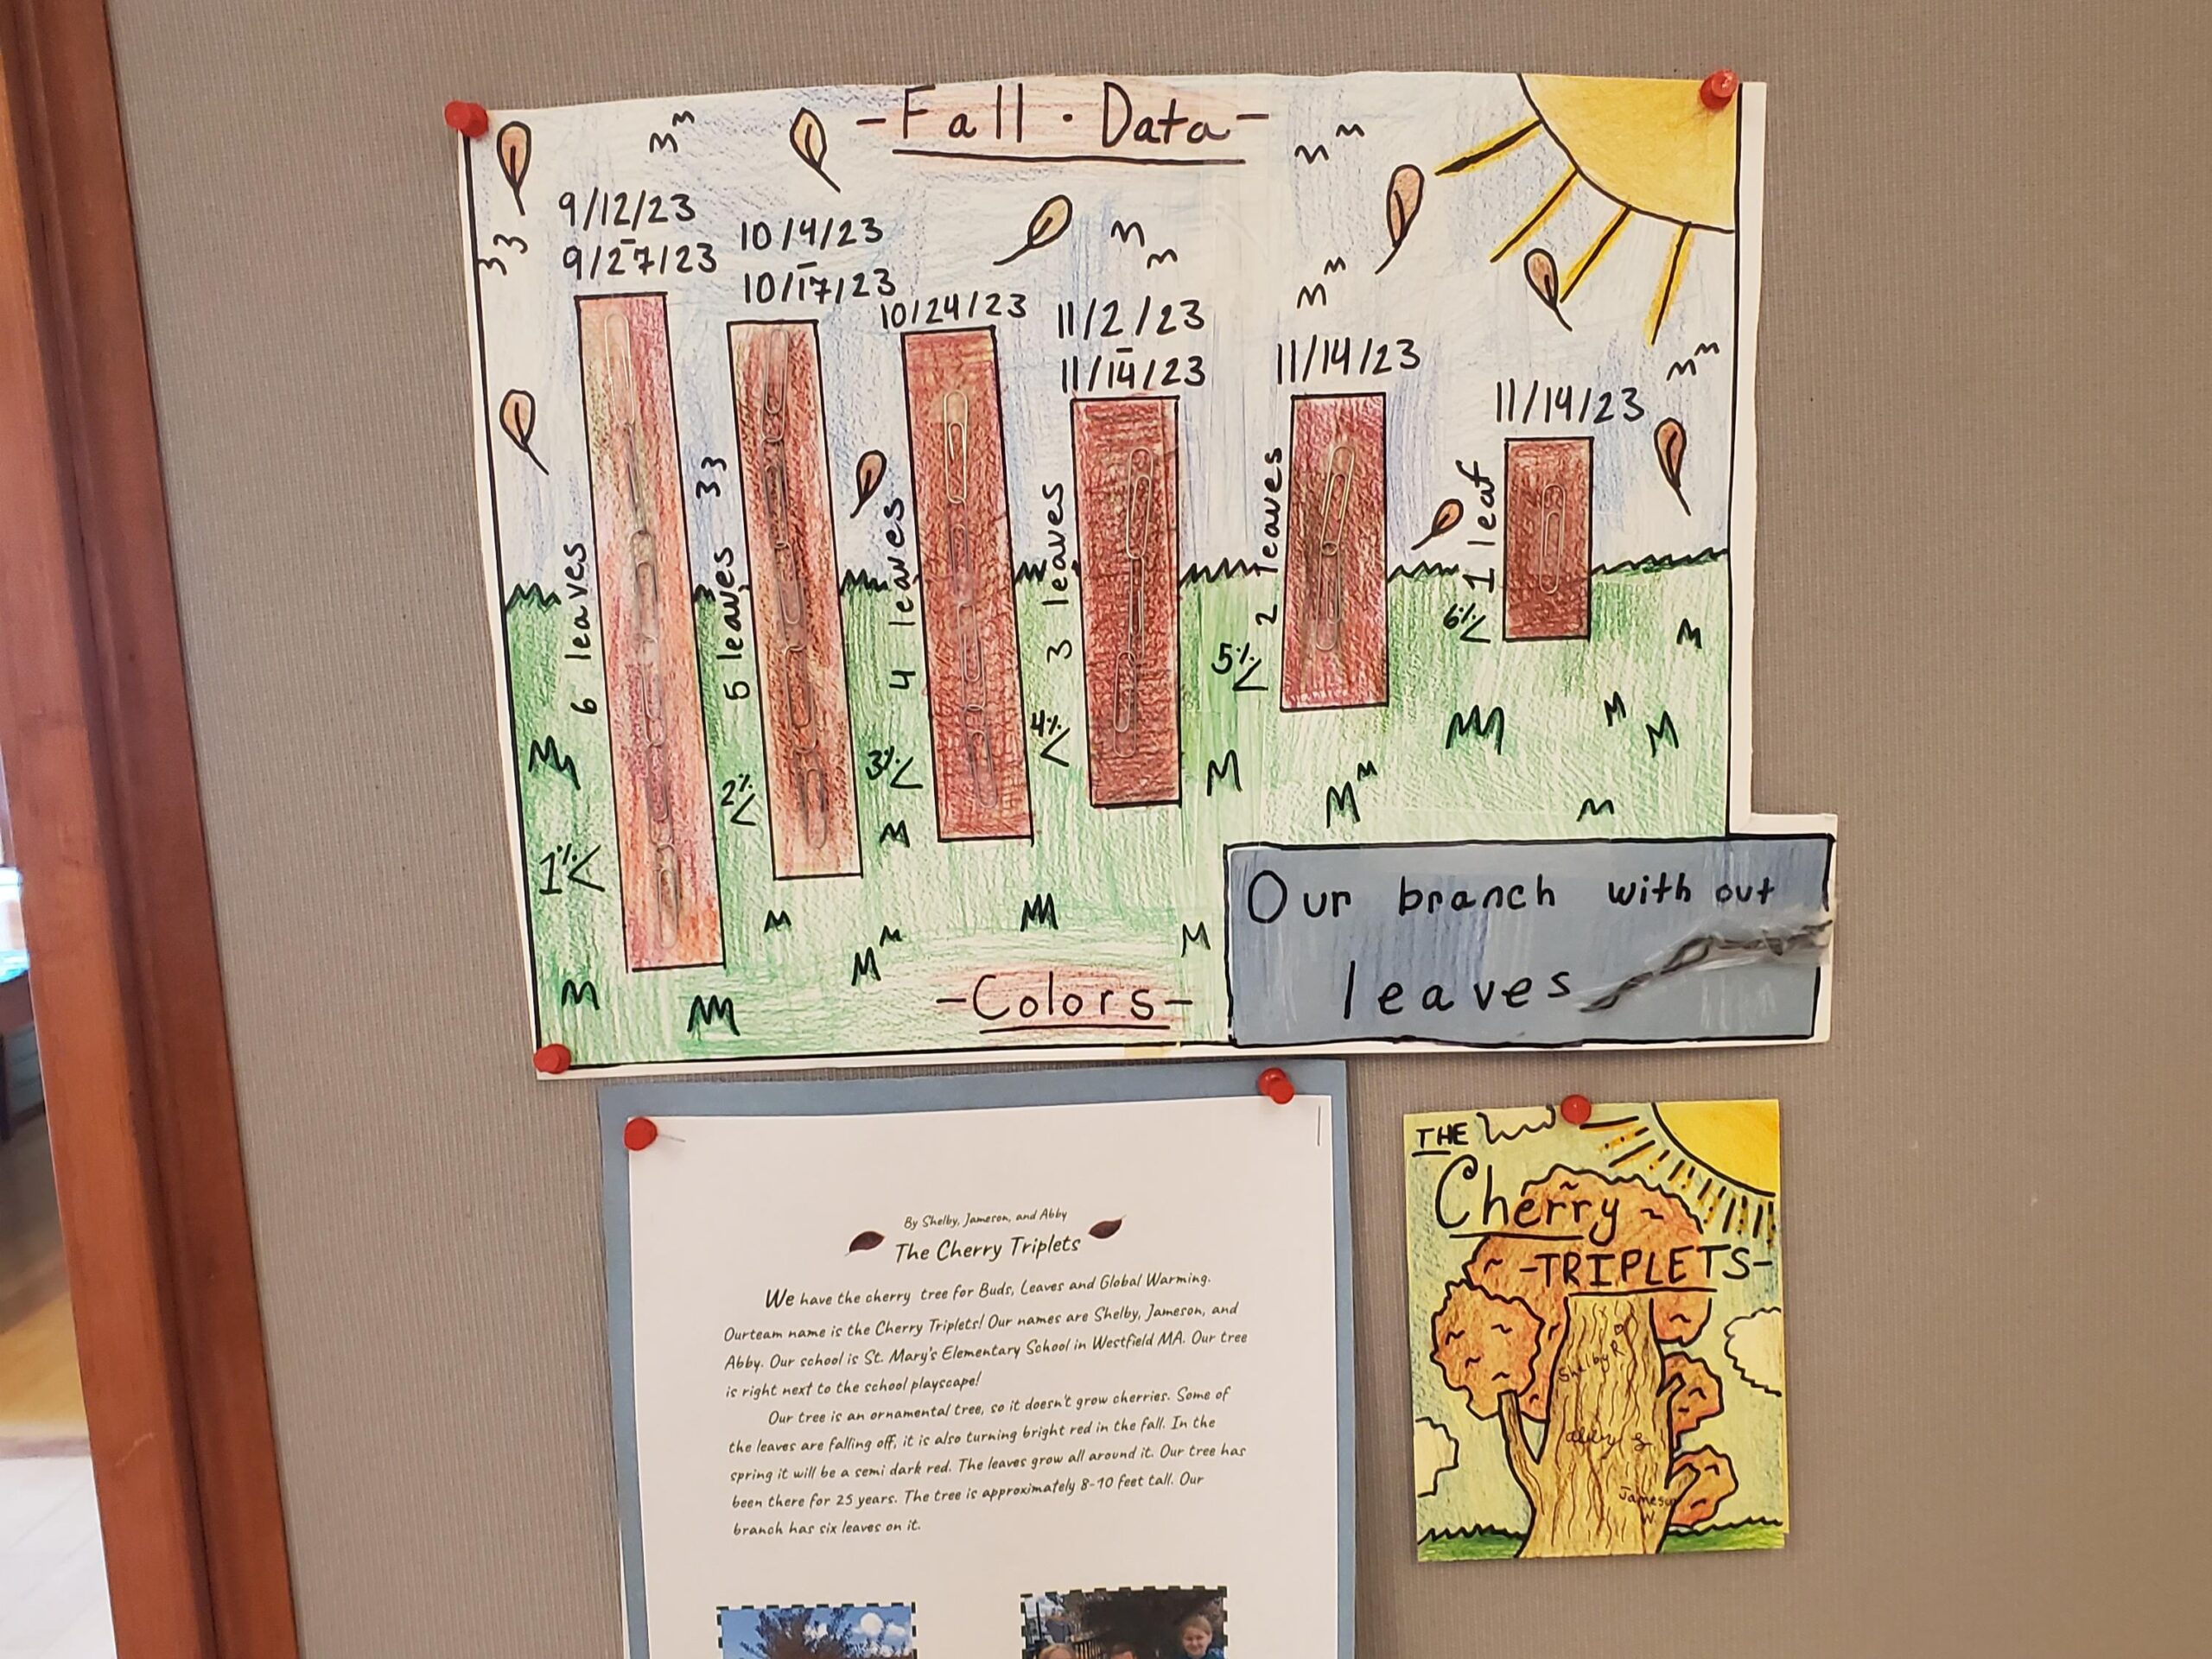 -Fall · Data-
9/12/23
-
9/27/23
10/4/23
-
10/17/23
10/24/23
11/2/23
-
11/14/23
11/14/23
11/14/23
6 leaves
5 leaves
4 leaves
3 leaves
2 leaves
1 leaf
1%<
2%<
3%<
4%<
5%<
6%<
-Colors-
Our branch with out
leaves
By Shelby, Jameson, and Abby
The Cherry Triplets
We have the cherry tree for Buds, Leaves and Global Warming.
Ourteam name is the Cherry Triplets! Our names are Shelby, Jameson, and
Abby. Our school is St. Mary's Elementary School in Westfield MA. Our tree
is right next to the school playscape!
Our tree is an ornamental tree, so it doesn't grow cherries. Some of
the leaves are falling off, it is also turning bright red in the fall. In the
spring it will be a semi dark red. The leaves grow all around it. Our tree has
been there for 25 years. The tree is approximately 8-10 feet tall. Our
branch has six leaves on it.
THE
Cherry
-TRIPLETS-
Shelby R
Abby G
Jameson
W